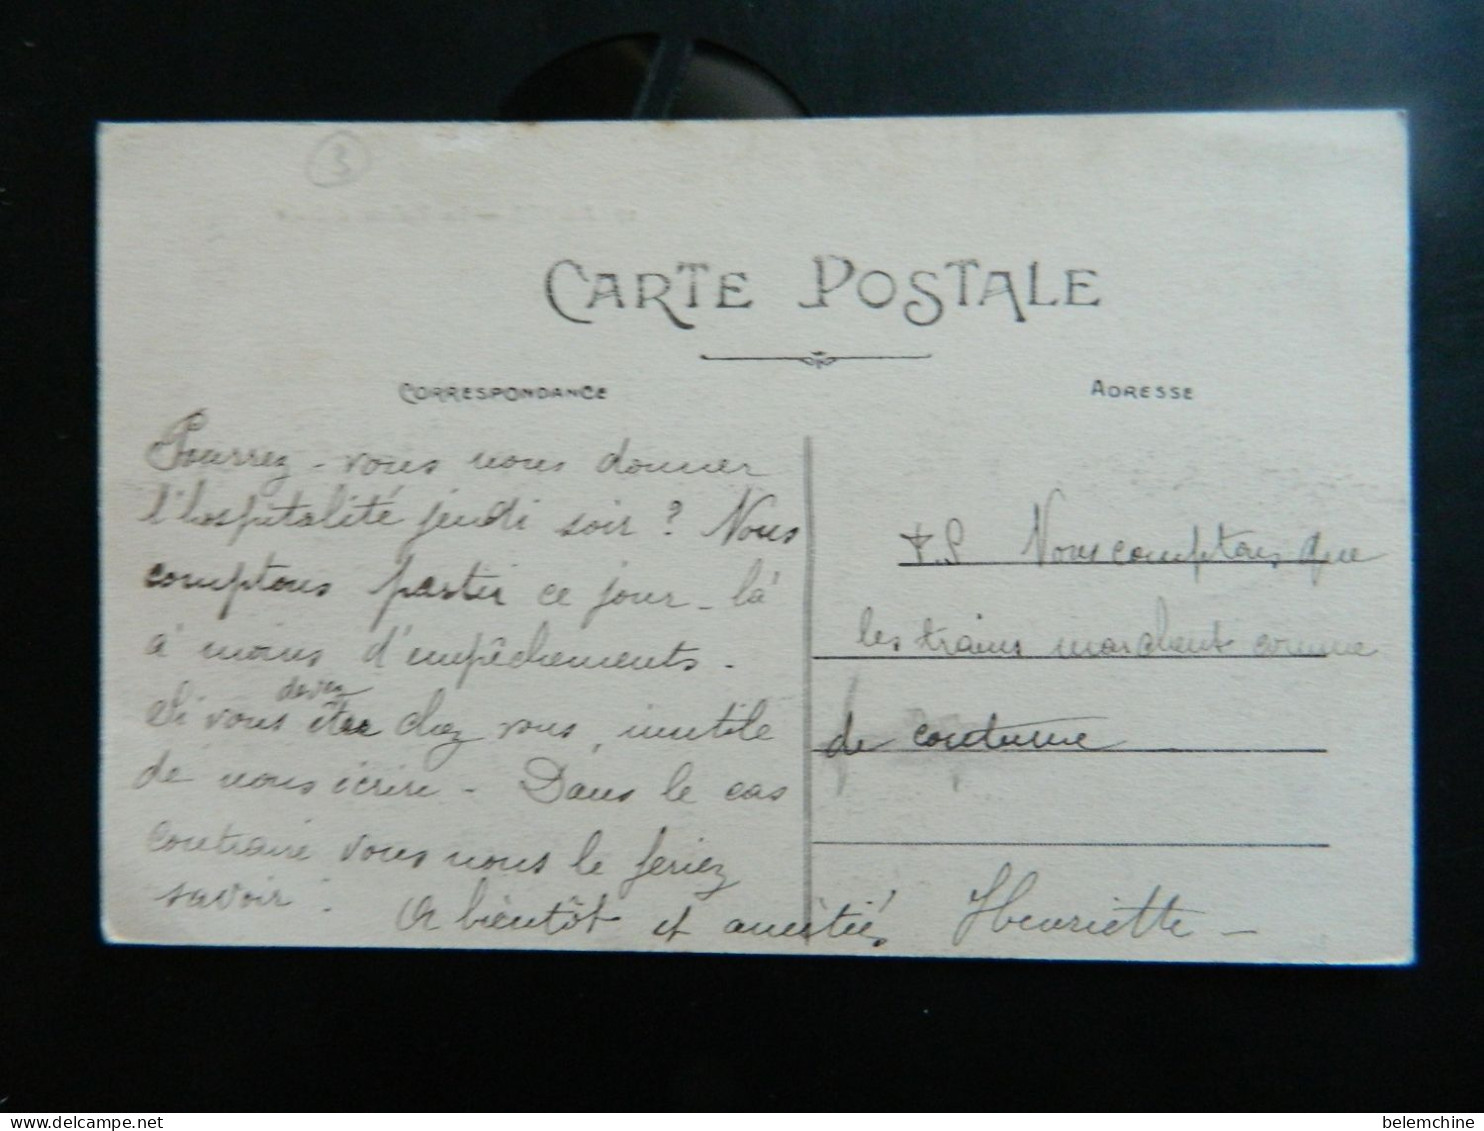 3
CARTE POSTALE
CORRESPONDANCE
ADRESSE
Pourrez-vous nous donner
l'hospitalité jeudi soir ? Nous
comptons partir ce jour-là
à moins d'empêchements -
devez
Si vous être chez vous, inutile
de nous écrire - Dans le cas
contraire vous nous le feriez
savoir.
A bientôt et amitiés Henriette -
P.S Nous comptons que
les trains marchent comme
de coutume
belemchine